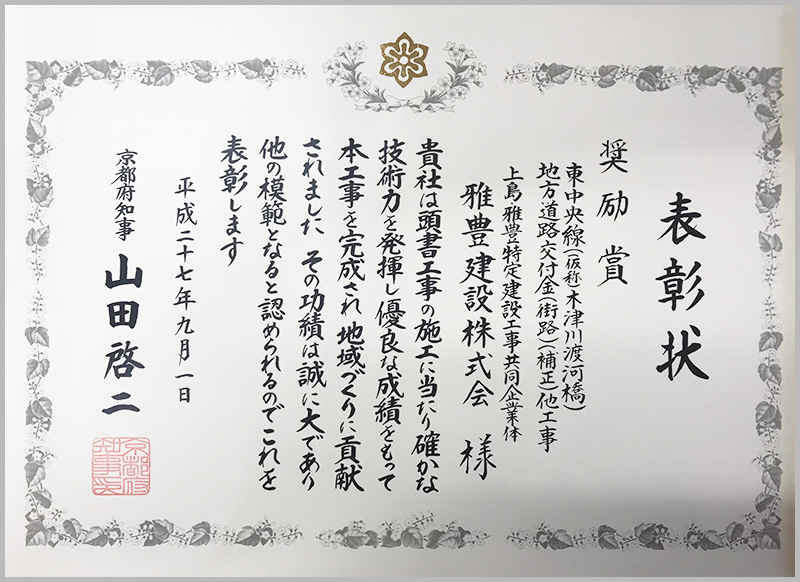 表彰状
奨励賞
東中央線(仮称)木津川渡河橋)
地方道路交付金(街路)(補正)他工事
上島雅豊特定建設工事共同企業体
雅豊建設株式会 様
貴社は頭書工事の施工に当たり確かな
技術力を発揮し優良な成績をもって
本工事を完成され地域づくりに貢献
されました その功績は誠に大であり
他の模範となると認められるのでこれを
表彰します
平成二十七年九月一日
京都府知事 山田啓二
京都府知事之印